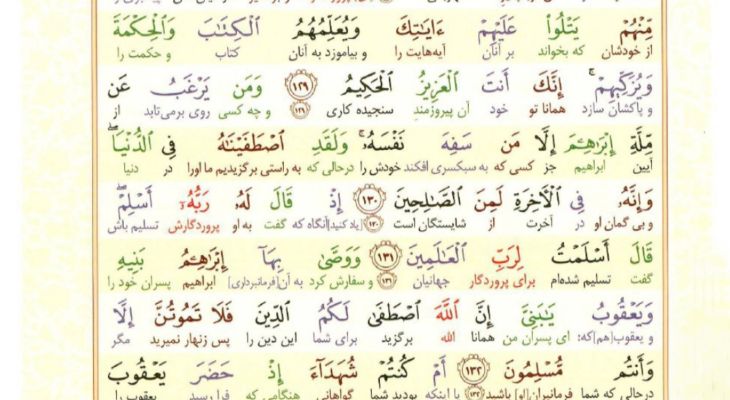 مِّنْهُمْ يَتْلُوا۟ عَلَيْهِمْ ءَايَـٰتِكَ وَيُعَلِّمُهُمُ ٱلْكِتَـٰبَ وَٱلْحِكْمَةَ
از خودشان که بخواند بر آنان آیه‌هایت را و بیاموزد به آنان کتاب و حکمت را
وَيُزَكِّيهِمْ ۚ إِنَّكَ أَنتَ ٱلْعَزِيزُ ٱلْحَكِيمُ ١٢٩ وَمَن يَرْغَبُ عَن
و پاکشان سازد همانا تو خود آن پیروزمند سنجیده کاری ١٢٩ و چه کسی روی برمی‌تابد از
مِّلَّةِ إِبْرَٰهِـۧمَ إِلَّا مَن سَفِهَ نَفْسَهُۥ ۚ وَلَقَدِ ٱصْطَفَيْنَـٰهُ فِى ٱلدُّنْيَا ۖ
آیین ابراهیم جز کسی که به سبکسری افکند خودش را درحالی که به راستی برگزیدیم ما اورا در دنیا
وَإِنَّهُۥ فِى ٱلْـَٔاخِرَةِ لَمِنَ ٱلصَّـٰلِحِينَ ١٣٠ إِذْ قَالَ لَهُۥ رَبُّهُۥٓ أَسْلِمْ ۖ
و بی گمان او در آخرت از شایستگان است ١٣٠ [یاد کنید] آنگاه که گفت به او پروردگارش تسلیم باش
قَالَ أَسْلَمْتُ لِرَبِّ ٱلْعَـٰلَمِينَ ١٣١ وَوَصَّىٰ بِهَآ إِبْرَٰهِـۧمُ بَنِيهِ
گفت تسلیم شده‌ام برای پروردگار جهانیان ١٣١ و سفارش کرد به آن [فرمانبرداری] ابراهیم پسران خود را
وَيَعْقُوبُ يَـٰبَنِىَّ إِنَّ ٱللَّهَ ٱصْطَفَىٰ لَكُمُ ٱلدِّينَ فَلَا تَمُوتُنَّ إِلَّا
و یعقوب [هم] که: ای پسران من همانا الله برگزید برای شما این دین را پس زنهار نمیرید مگر
وَأَنتُم مُّسْلِمُونَ ١٣٢ أَمْ كُنتُمْ شُهَدَآءَ إِذْ حَضَرَ يَعْقُوبَ
درحالی که شما فرمانبران [او] باشید ١٣٢ یا اینکه بودید شما گواهانی هنگامی که فرا رسید یعقوب را